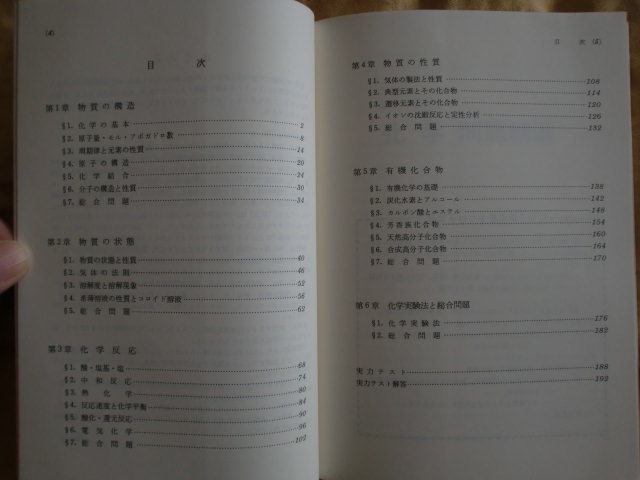 (4)
目 次
第1章 物質の構造
§1. 化学の基本 2
§2. 原子量・モル・アボガドロ数 8
§3. 周期律と元素の性質 14
§4. 原子の構造 20
§5. 化学結合 24
§6. 分子の構造と性質 30
§7. 総合問題 34
第2章 物質の状態
§1. 物質の状態と性質 40
§2. 気体の法則 46
§3. 溶解度と溶解現象 52
§4. 希薄溶液の性質とコロイド溶液 56
§5. 総合問題 62
第3章 化学反応
§1. 酸・塩基・塩 68
§2. 中和反応 74
§3. 熱化学 80
§4. 反応速度と化学平衡 84
§5. 酸化・還元反応 90
§6. 電気化学 96
§7. 総合問題 102
目 次 (5)
第4章 物質の性質
§1. 気体の製法と性質 108
§2. 典型元素とその化合物 114
§3. 遷移元素とその化合物 120
§4. イオンの沈殿反応と定性分析 126
§5. 総合問題 132
第5章 有機化合物
§1. 有機化学の基礎 138
§2. 炭化水素とアルコール 142
§3. カルボン酸とエステル 148
§4. 芳香族化合物 154
§5. 天然高分子化合物 160
§6. 合成高分子化合物 164
§7. 総合問題 170
第6章 化学実験法と総合問題
§1. 化学実験法 176
§2. 総合問題 182
実力テスト 188
実力テスト解答 192